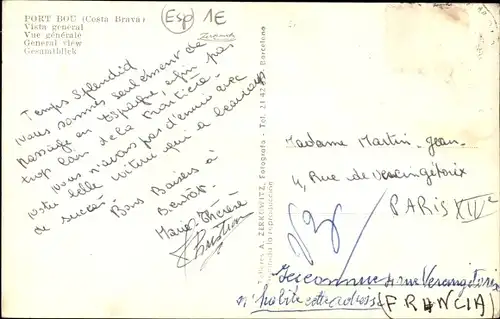 PORT BOU (Costa Brava)
Vista general
Vue générale
General view
Gesamtblick
Esp 1E
Zerkowitz
Temps Splendid
Nous sommes seulement de
passage en Espagne, afin pas
trop loin de la frontière.
Nous n'avons pas d'ennuis avec
votre belle voiture qui a beaucoup
de succès.
Bons Baisers à
Bientôt.
Marie-Thérèse
Christian
Talleres A. ZERKOWITZ, Fotografo - Tel. 21 42 Barcelona
Prohibida la reproducción
Madame Martin-Jean-
4, Rue de Vercingétorix
PARIS XIVe
Inconnue 4 rue Vercingétorix
n'habite cette adresse
(FRANCIA)